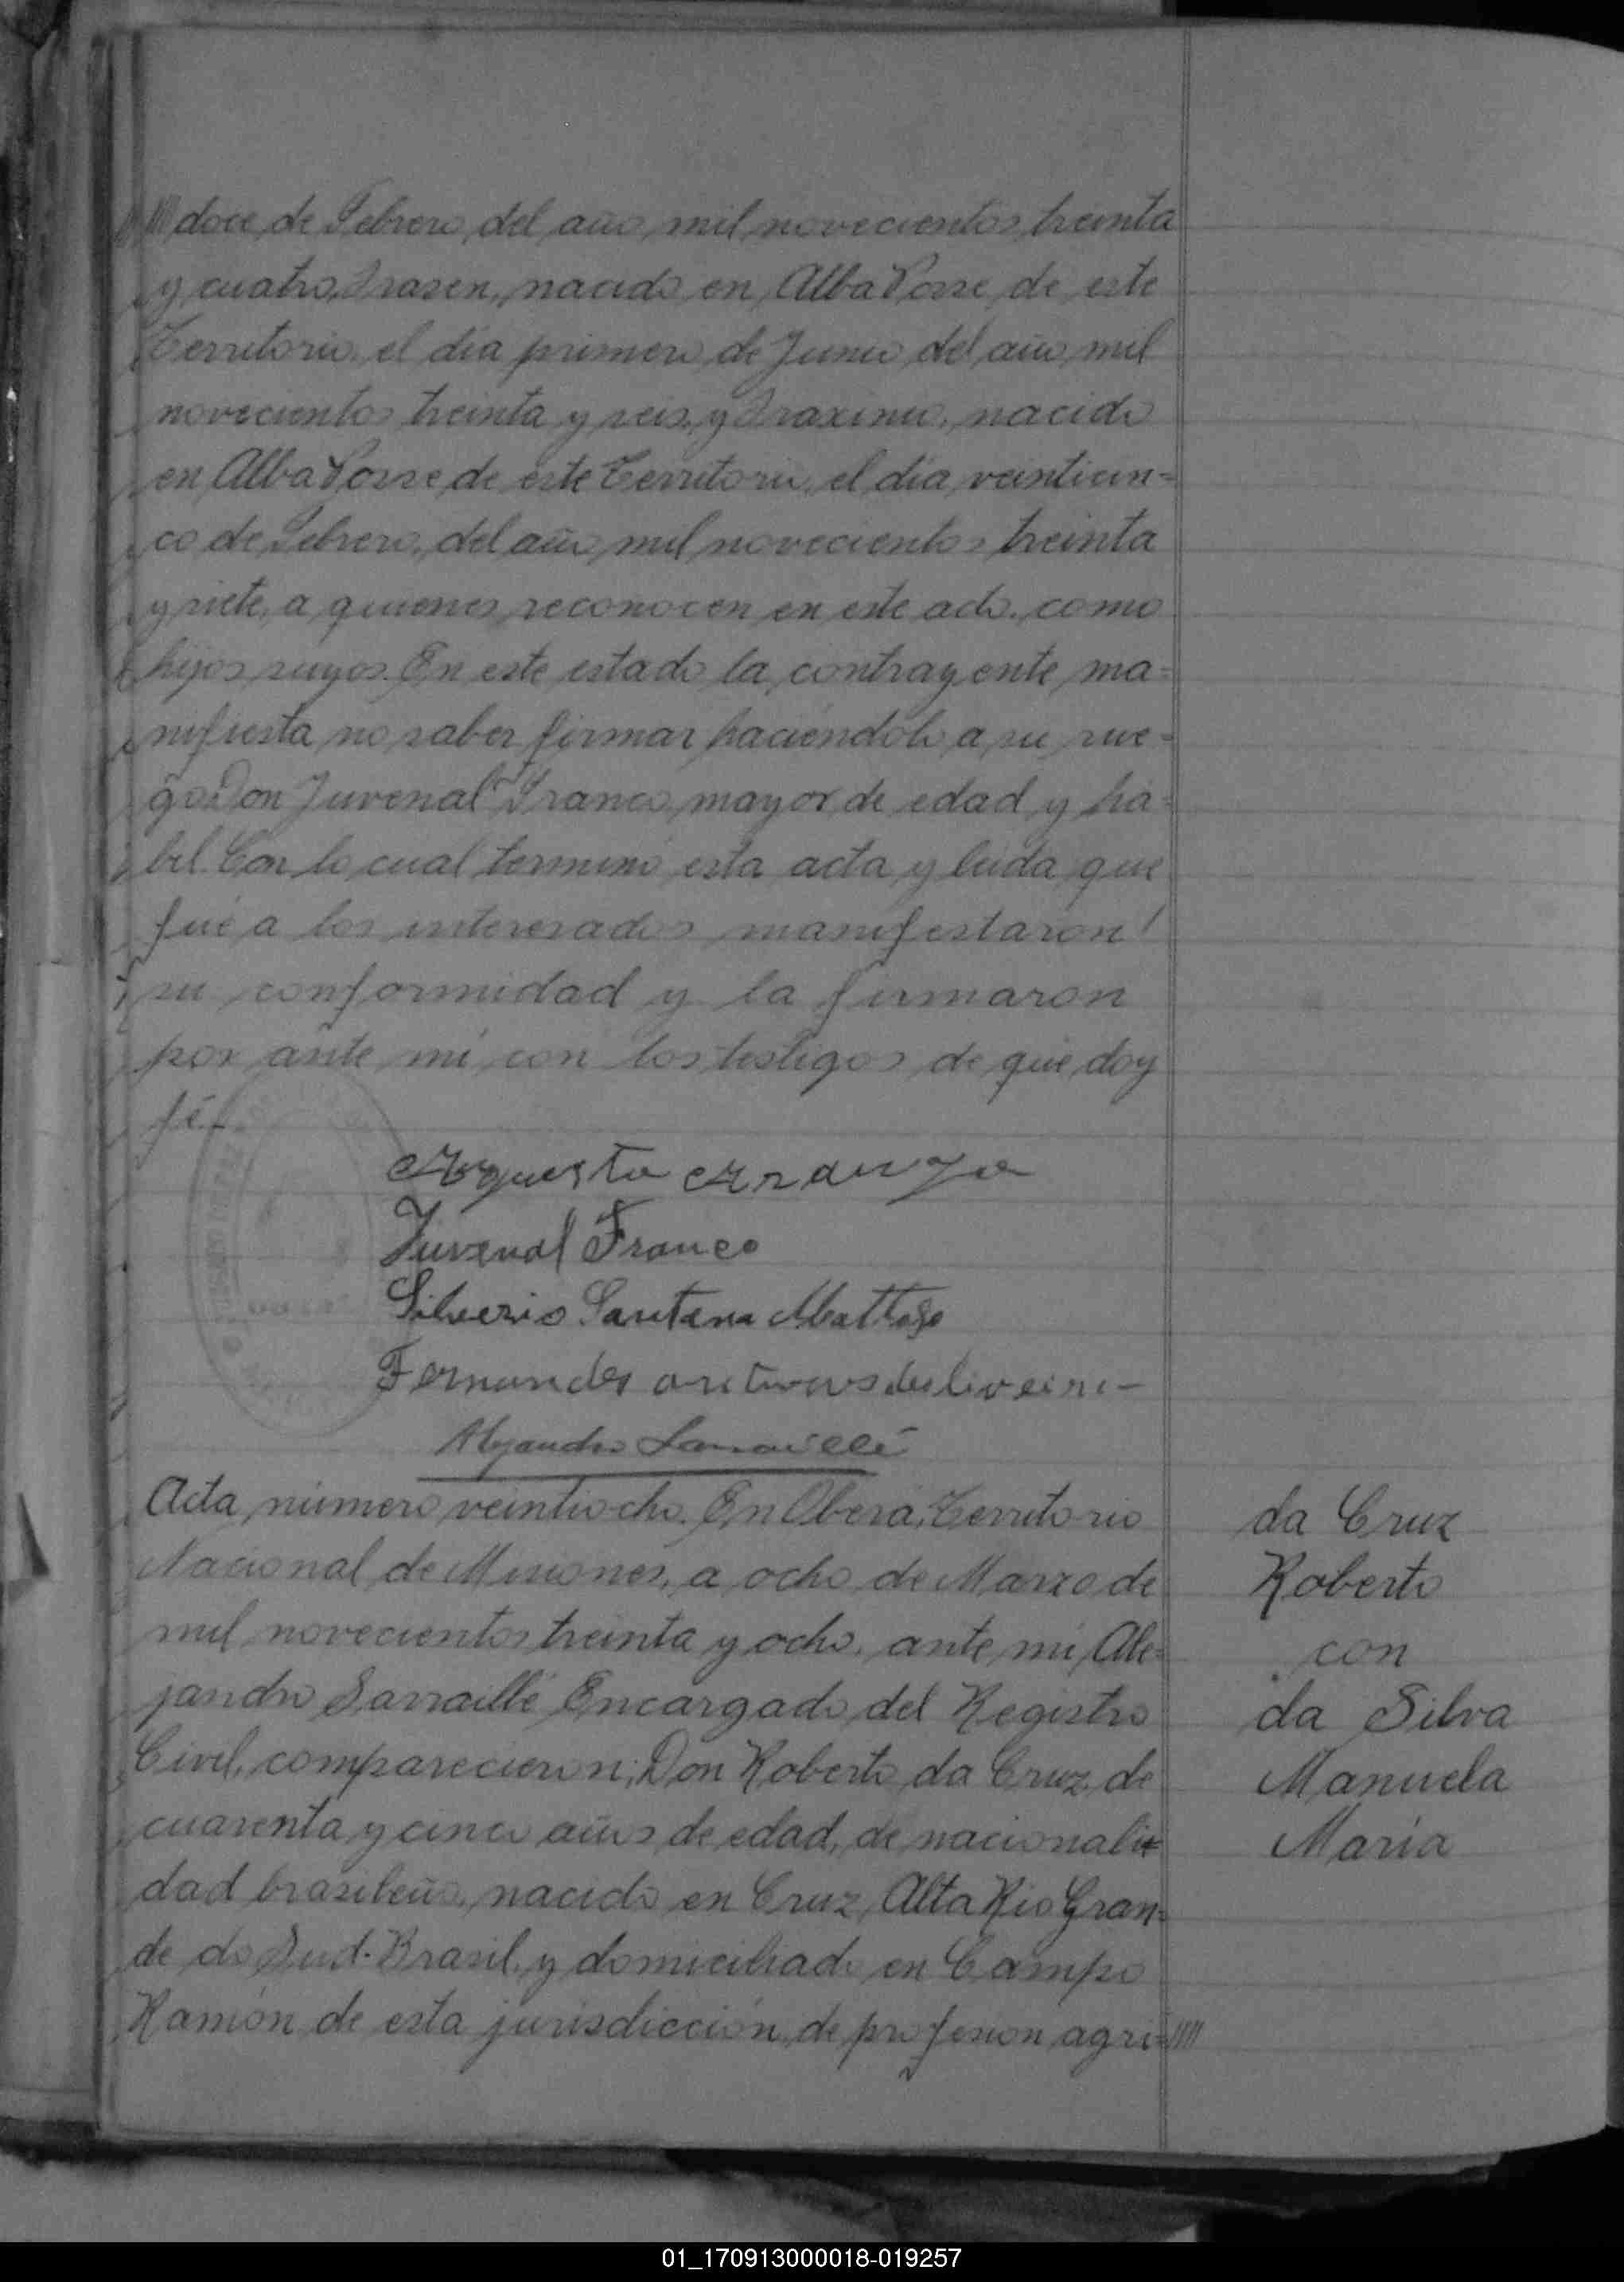 //// doce de Febrero, del año mil novecientos treinta
y cuatro, nacido en Alba Posse de este
Territorio, el día primero de Junio del año mil
novecientos treinta y seis, y nacido
en Alba Posse de este Territorio, el día veinticin=
co de Febrero, del año mil novecientos treinta
y siete, a quienes reconocen en este acto, como
hijos suyos. En este estado la contrayente ma=
nifiesta no saber firmar haciéndolo a su rue=
go Don Juvenal Franco, mayor de edad y há=
bil. Con lo cual terminó esta acta y leida que
fué a los interesados manifestaron
su conformidad y la firmaron
por ante mí con los testigos de que doy
fé.
Juvenal Franco
Silverio Santana Mattoso
Fernandes
Alejandro Sarraillé
Acta número veintiocho. En Oberá, Territorio
Nacional de Misiones, a ocho de Marzo de
mil novecientos treinta y ocho, ante mí, Ale=
jandro Sarraillé Encargado del Registro
Civil, comparecieron; Don Roberto da Cruz, de
cuarenta y cinco años de edad, de nacionali
dad brasileño, nacido en Cruz Alta Rio Gran=
de do Sud. Brasil, y domiciliado en Campo
Ramón de esta jurisdicción, de profesion agri=////
da Cruz
Roberto
con
da Silva
Manuela
María
01_170913000018-019257